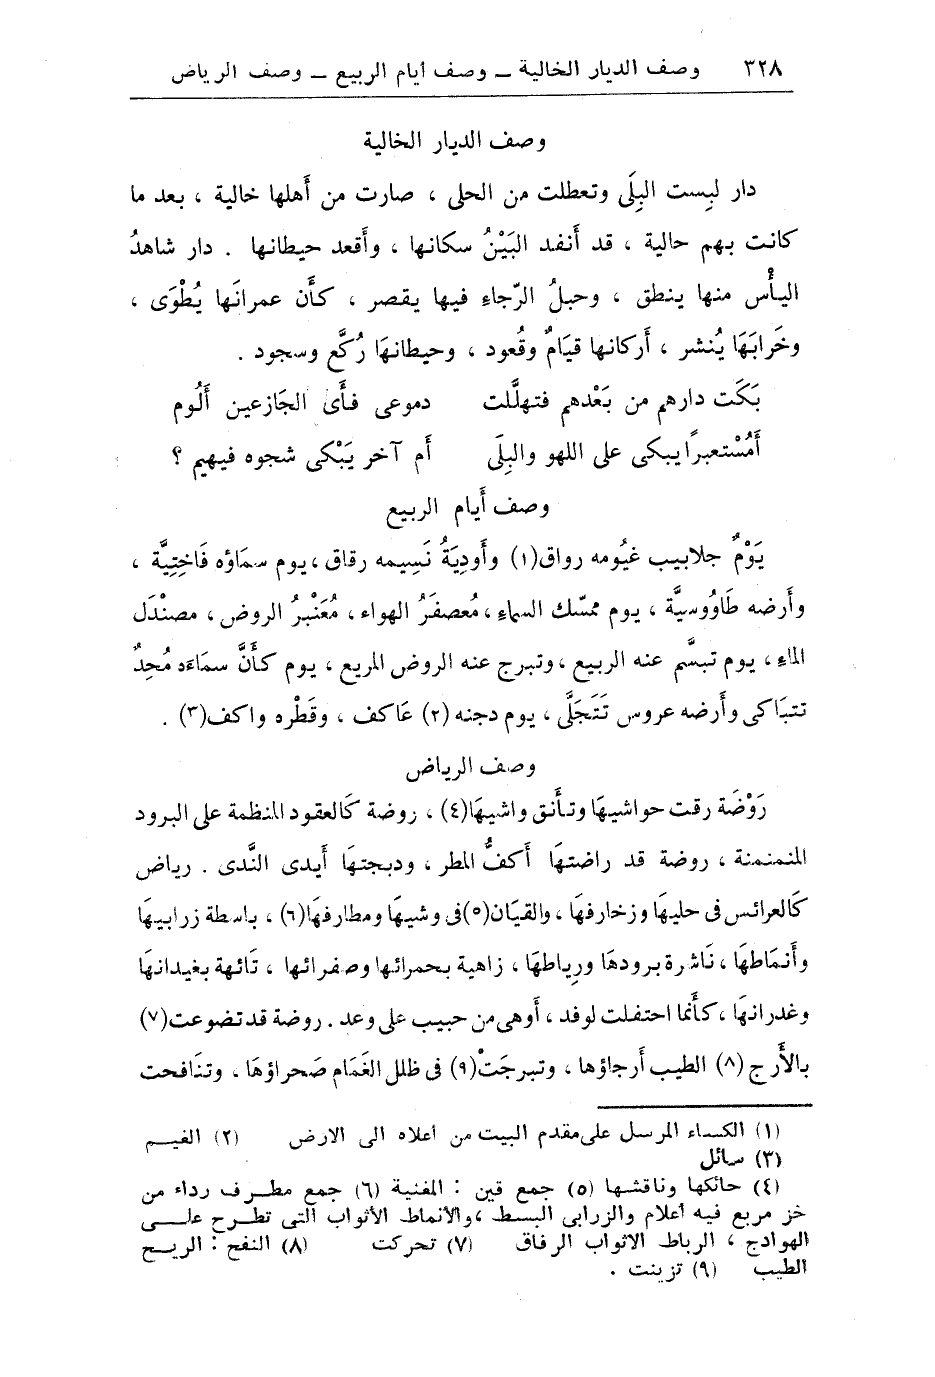 ٣٢٨ وصف الديار الخالية ــ وصف أيام الربيع ــ وصف الرياض
وصف الديار الخالية
دار لبِست البِلَى وتعطلت من الحلى ، صارت من أَهلها خالية ، بعد ما
كانت بهم حالية ، قد أَنفد البَيْنُ سكانها ، وأَقعد حيطانها . دار شاهدُ
اليأْس منها ينطق ، وحبلُ الرّجاءِ فيها يقصر ، كأَن عمرانَها يُطْوَى ،
وخَرابَهَا يُنشر ، أَركانها قيَامٌ وقُعود ، وحيطانهَا رُكَّع وسجود .
بَكَت دارهم من بَعْدهم فتهلَّلت دموعى فأَى الجَازعين أَلُوم
أَمُسْتعبرًا يبكى على اللهو والبِلَى أم آخر يَبْكى شجوه فيهيم ؟
وصف أَيام الربيع
يَوْمٌ جلابيب غيُومه رواق(١) وأَوديَةُ نَسِيمه رقاق ، يوم سمَاؤه فَاختِيَّة ،
وأَرضه طَاوُوسيَّة ، يوم ممسّك السماءِ ، مُعصفَرُ الهواء ، مُعَنْبرُ الروض ، مصنْدَل
الماءِ ، يوم تبسَّم عنه الربيع ، وتبرج عنه الروض المريع ، يوم كأَنَّ سمَاءَه مُحِدٌّ
تتبَاكى وأَرضه عروس تَتَجَلَّى ، يوم دجنه (٢) عَاكف ، وقَطْره واكف(٣) .
وصف الرياض
رَوْضَة رقت حواشيهَا وتأَنق واشيهَا(٤) ، روضة كَالعقود المنظمة على البرود
المنمنمة ، روضة قد راضتهَا أَكفُّ المطر ، ودبجتهَا أَيدى النَّدى . رياض
كَالعرائس فى حليهَا وزخارفهَا ، والقيَان(٥) فى وشيهَا ومطارفهَا(٦) ، باسطة زرابيهَا
وأَنمَاطهَا ، نَاشرة برودهَا ورِياطهَا ، زاهية بحمرائها وصفرائها ، تَائهة بغيدانهَا
وغدرانهَا ، كأَنما احتفلت لوفد ، أَوهى من حبيب على وعد . روضة قد تضوعت(٧)
بالأَرج (٨) الطيب أَرجاؤها ، وتبرجَتْ(٩) فى ظلل الغَمَام صَحراؤهَا ، وتنَافحت
(١) الكساء المرسل على مقدم البيت من أعلاه الى الارض (٢) الغيم
(٣) سائل
(٤) حائكها وناقشها (٥) جمع قين : المغنية (٦) جمع مطرف رداء من
خز مربع فيه أعلام والزرابى البسط ، والأنماط الأثواب التى تطرح على
الهوادج ، الرباط الاثواب الرقاق (٧) تحركت (٨) النفح : الريح
الطيب (٩) تزينت .